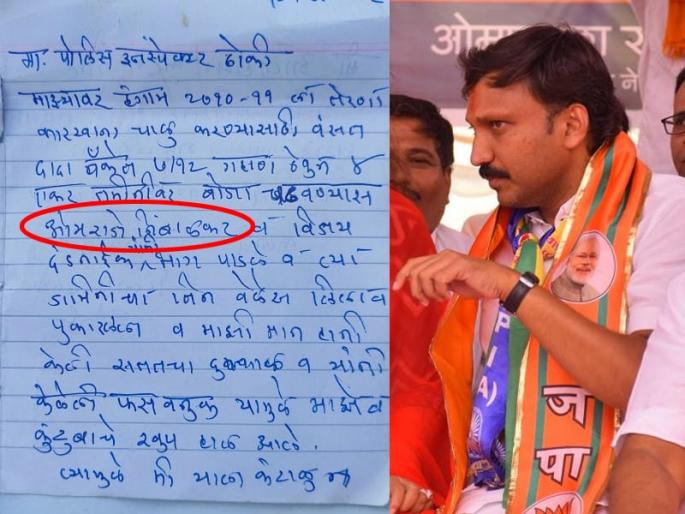 मा. पोलिस इन्स्पेक्टर ढोकी
माझ्यावर हंगाम २०१०-११ ला तेरणा
कारखाना चालु करण्यासाठी वसंत
दादा बँकेत ७/१२ गहाण ठेवुन ४
एकर जमीनीवर बोजा चढवण्यास
ओमराजे निंबाळकर व विजय
यांनी
दंडनाईक भाग पाडले व त्या
पुकारलेल व माझी मान हानी
केली सततचा दुष्काळ व यांनी
केलेली फसवणुक यामुळे माझे व
कुंटुबाचे खुप हाल आले.
त्यामुळे मी याला कंटाळुन
ओमप्रकाश
जपा